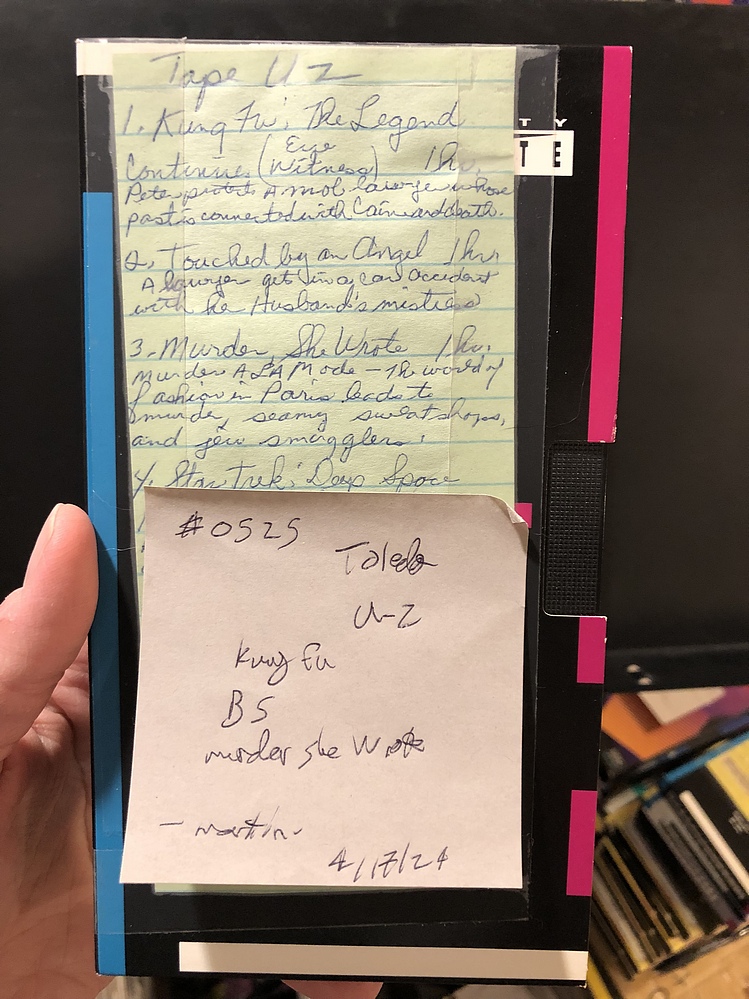 Tape U Z
TY
1. Kung Fu: The Legend
TE
Continues (Eye Witness) 1 hr.
Pete protects A mob lawyer whose
past is connected with Caine and death.
2. Touched by an Angel 1 hr
A lawyer gets in a car accident
with he Husband's mistress
3. Murder, She Wrote 1 hr.
Murder A LA Mode - The world of
fashion in Paris leads to
murder, seamy sweatshops,
and jew smugglers.
4. Star Trek: Deep Space
#0525
Toledo
U-Z
Kung fu
BS
murder she Wrote
4/17/24